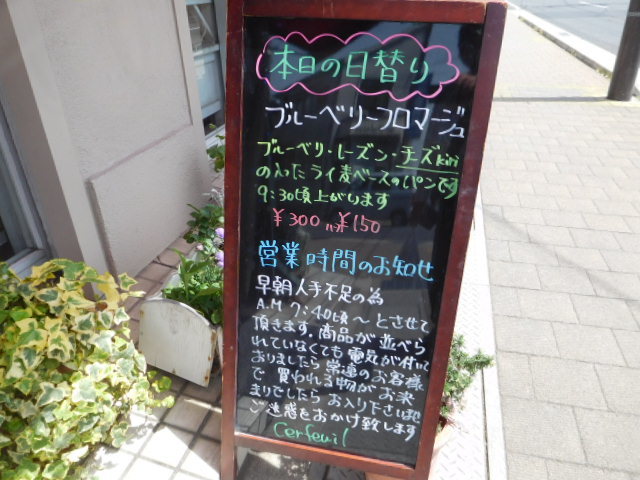 本日の日替り
ブルーベリーフロマージュ
ブルーベリ・レーズン・チーズkiri
の入ったライ麦ベースのパンです
9:30頃上がります
¥300 ハーフ¥150
営業時間のお知せ
早朝人手不足の為
A.M 7:40頃〜とさせて
頂きます。商品が並べら
れていなくても電気が付いて
おりましたら常連のお客様
で買われる物がお決
まりでしたらお入り下さいませ
ご迷惑をおかけ致します
Cerfeuil